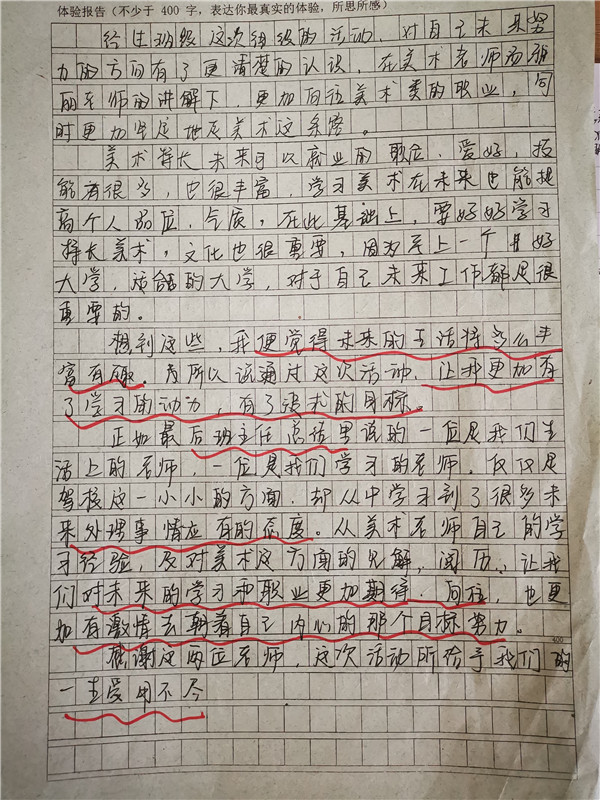 体验报告（不少于 400 字，表达你最真实的体验，所思所感）
经过班级这次组织的活动，对自己未来努
力的方向有了更清楚的认识，在美术老师汤
丽老师的讲解下，更加向往美术类的职业，同
时更加坚定地在美术这条路。
美术特长未来可以就业的职位，爱好，技
能有很多，也很丰富，学习美术在未来也能提
高个人品位，气质，在此基础上，要好好学习
特长美术，文化也很重要，因为考上一个好
大学，适合的大学，对于自己未来工作都是很
重要的。
想到这些，我便觉得未来的生活将多么丰
富有趣。所以说通过这次活动，让我更加有
了学习的动力，有了追求的目标。
正如最后班主任总结里说的一位是我们生
活上的老师，一位是我们学习的老师。仅仅是
驾校这一小小的方面，却从中学习到了很多未
来处理事情应有的态度。从美术老师自己的学
习经验，及对美术这方面的见解，阅历，让我
们对未来的学习和职业更加期待，向往，也更
加有激情去朝着自己内心的那个目标努力。
400
感谢这两位老师，这次活动所给予我们的
一生受用不尽